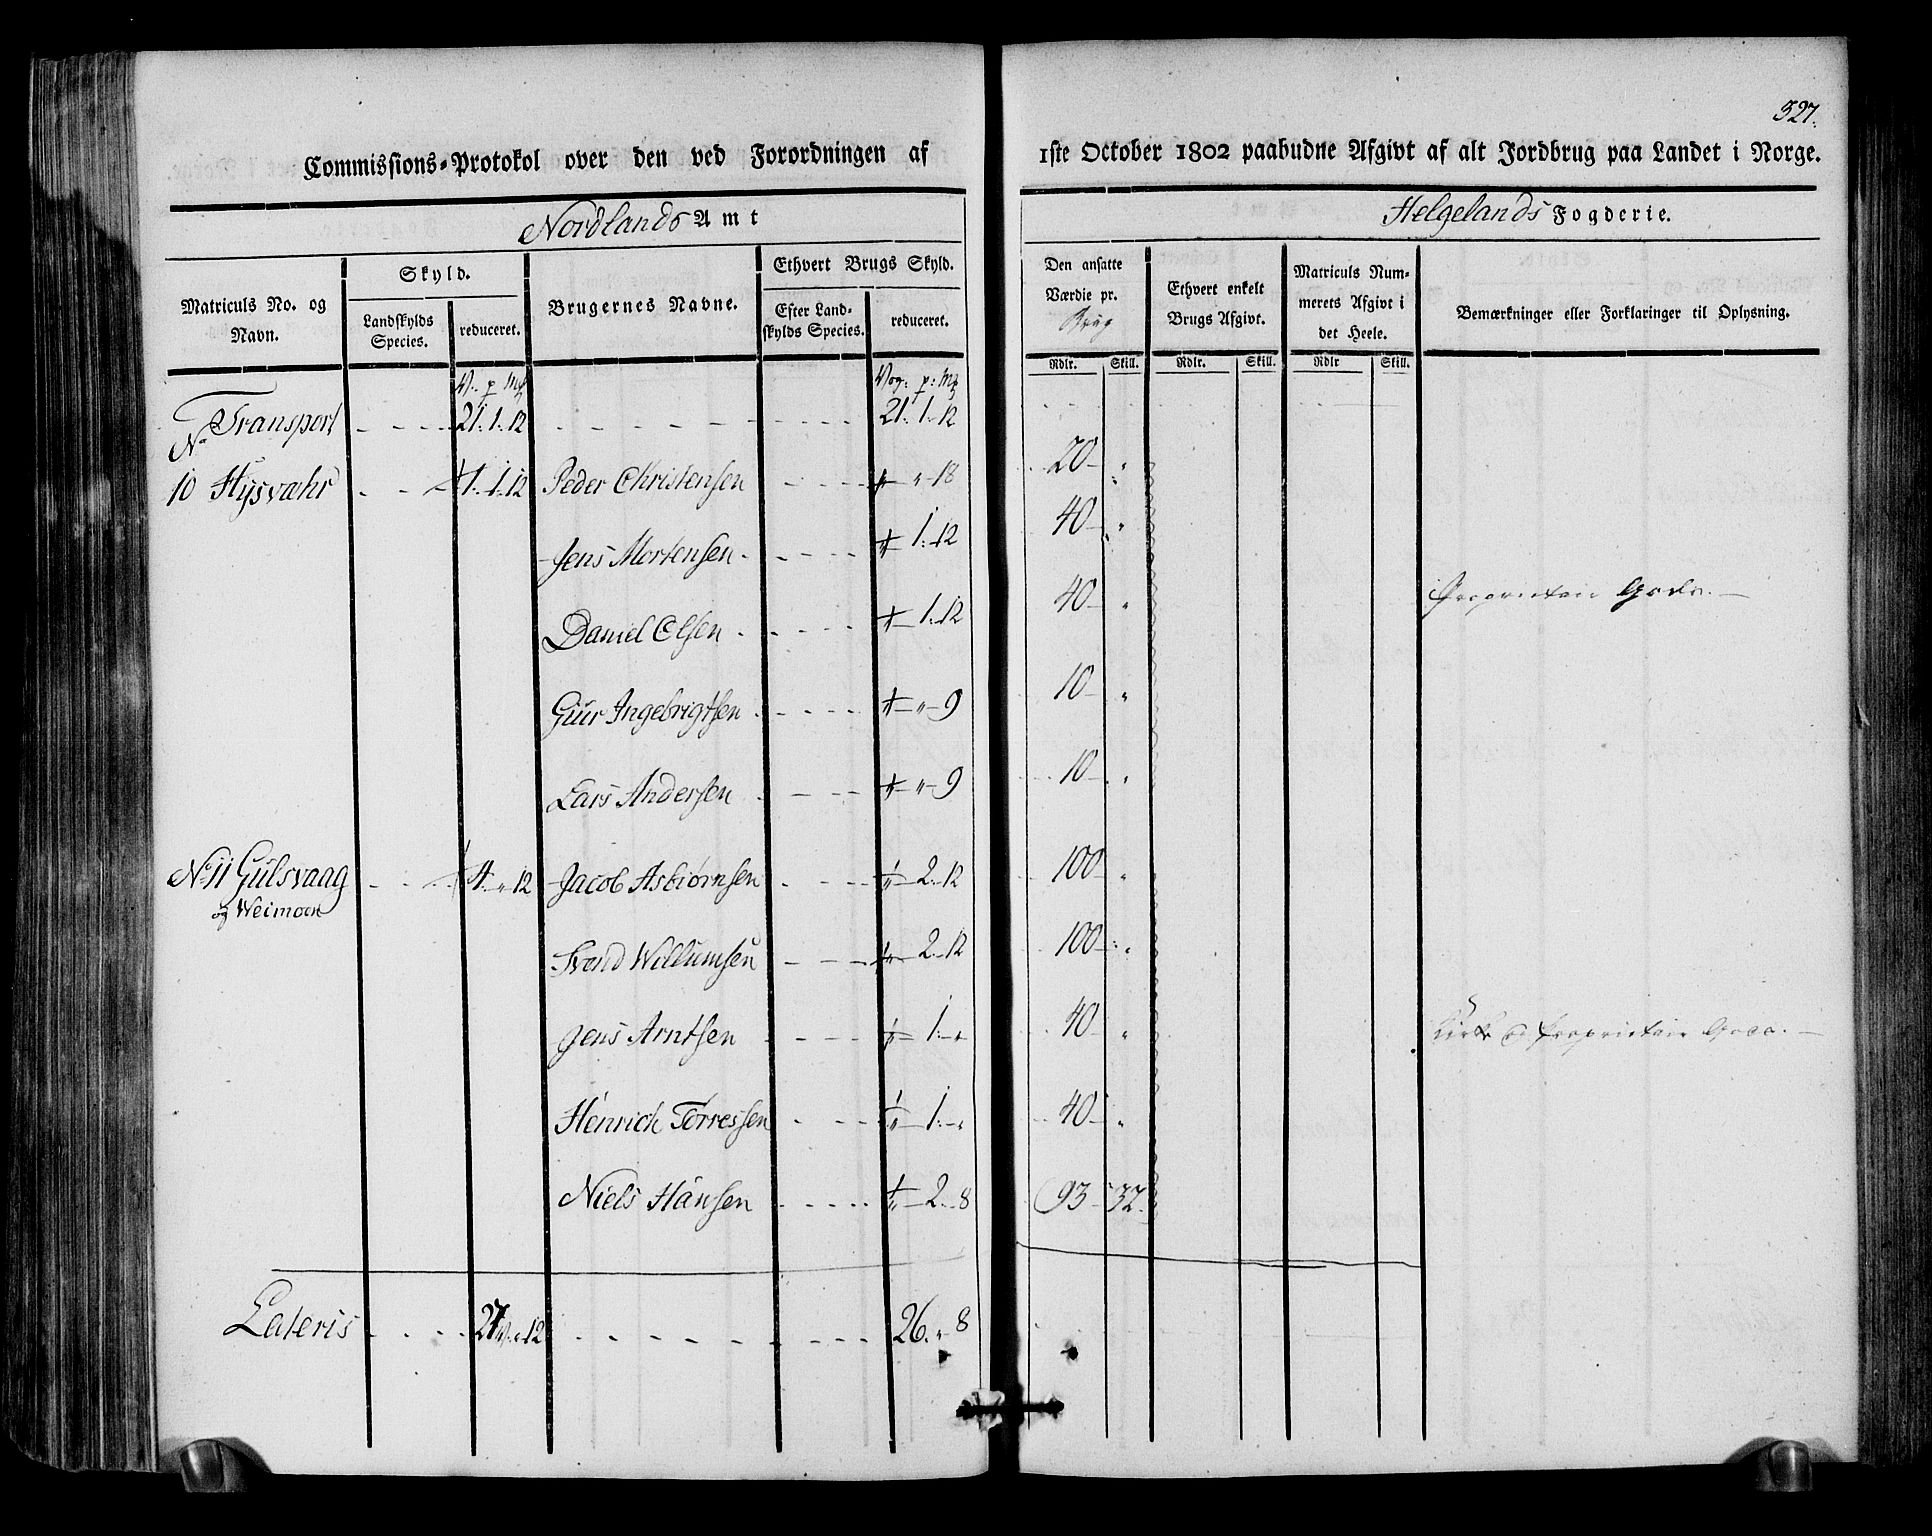 327.
Commissions-Protokol over den ved Forordningen af 1ste October 1802 paabudne Afgivt af alt Jordbrug paa Landet i Norge.
Nordlands Amt
Helgelands Fogderie.
Matriculs No. og Navn.
Skyld.
Landskylds Species.
reduceret.
Brugernes Navne.
Ethvert Brugs Skyld.
Efter Landskylds Species.
reduceret.
Den ansatte Værdie pr. Brug
Ethvert enkelt Brugs Afgivt.
Matriculs Nummerets Afgivt i det Heele.
Bemærkninger eller Forklaringer til Oplysning.
Rdlr. Skill. Rdlr. Skill. Rdlr Skill.
V. p Mk Vog: p: Mk
Transport 21. 1. 12 21. 1. 12
No
10 Hysvæhr 1. 1. 12 Peder Christensen " 18 20 "
Jens Mortensen 1. 12 40 "
Daniel Olsen 1. 12 40 " Proprietair Gods.
Guur Ingebrigtsen " 9 10 "
Lars Andersen " 9 10 "
No 11 Gulsvaag 4. " 12 Jacob Asbiørnsen 2. 12 100 "
og Weimoen
Svend Willumsen 2. 12 100 "
Jens Arntsen 1. " 40 " Kirke og Proprietair Gods.
Henrich Torressen 1. " 40 "
Niels Hansen 2. 8 93 32.
Lateris 27 " 12 26. " 8